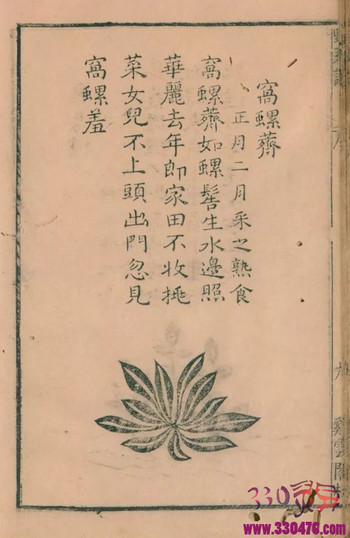 窩螺薺
正月二月采之熟食
窩螺薺如螺髻生水邊照
華麗去年郎家田不收挑
菜女兒不上頭出門忽見
窩螺羞
330
www.330476.com